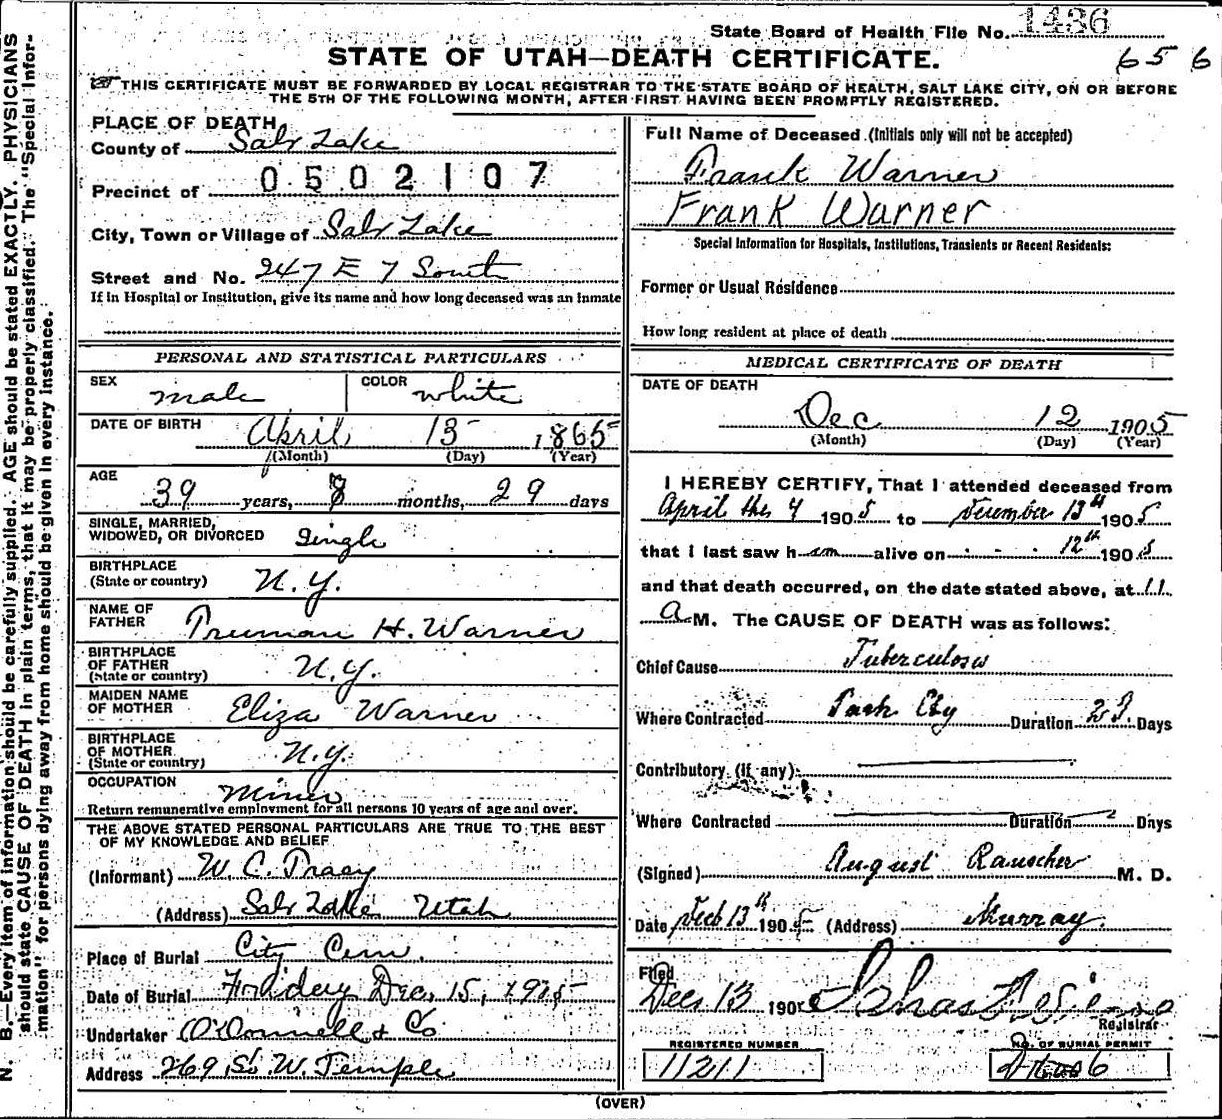 State Board of Health File No. 1436
656
STATE OF UTAH—DEATH CERTIFICATE.
THIS CERTIFICATE MUST BE FORWARDED BY LOCAL REGISTRAR TO THE STATE BOARD OF HEALTH, SALT LAKE CITY, ON OR BEFORE
THE 5TH OF THE FOLLOWING MONTH, AFTER FIRST HAVING BEEN PROMPTLY REGISTERED.
PLACE OF DEATH
County of Salt Lake
Precinct of 0502107
City, Town or Village of Salt Lake
Street and No. 247 E 7 South
If in Hospital or Institution, give its name and how long deceased was an inmate
PERSONAL AND STATISTICAL PARTICULARS
SEX male COLOR white
DATE OF BIRTH April 13 1865
(Month) (Day) (Year)
AGE 39 years, 8 months, 29 days
SINGLE, MARRIED,
WIDOWED, OR DIVORCED Single
BIRTHPLACE
(State or country) N.Y.
NAME OF
FATHER Truman H. Warner
BIRTHPLACE
OF FATHER
(State or country) N.Y.
MAIDEN NAME
OF MOTHER Eliza Warner
BIRTHPLACE
OF MOTHER
(State or country) N.Y.
OCCUPATION Miner
Return remunerative employment for all persons 10 years of age and over.
THE ABOVE STATED PERSONAL PARTICULARS ARE TRUE TO THE BEST
OF MY KNOWLEDGE AND BELIEF
(Informant) W. C. Tracy
(Address) Salt Lake Utah
Place of Burial City Cem.
Date of Burial Friday Dec. 15, 1905
Undertaker O'Donnell & Co
Address 269 So. W. Temple
Full Name of Deceased (Initials only will not be accepted)
Frank Warner
Frank Warner
Special Information for Hospitals, Institutions, Transients or Recent Residents:
Former or Usual Residence
How long resident at place of death
MEDICAL CERTIFICATE OF DEATH
DATE OF DEATH
Dec 12 1905
(Month) (Day) (Year)
I HEREBY CERTIFY, That I attended deceased from
April the 4 1905 to December 13th 1905
that I last saw him alive on 12th 1905
and that death occurred, on the date stated above, at 11
a M. The CAUSE OF DEATH was as follows:
Chief Cause Tuberculosis
Where Contracted Park City Duration 23. Days
Contributory (if any)
Where Contracted Duration Days
(Signed) August Rauscher M. D.
Date Dec 13th 1905 (Address) Murray
Filed
Dec 13 190
Registrar
REGISTERED NUMBER
11211
NO. OF BURIAL PERMIT
(OVER)
N. B.—Every item of information should be carefully supplied. AGE should be stated EXACTLY. PHYSICIANS
should state CAUSE OF DEATH in plain terms, that it may be properly classified. The "Special Infor-
mation" for persons dying away from home should be given in every instance.